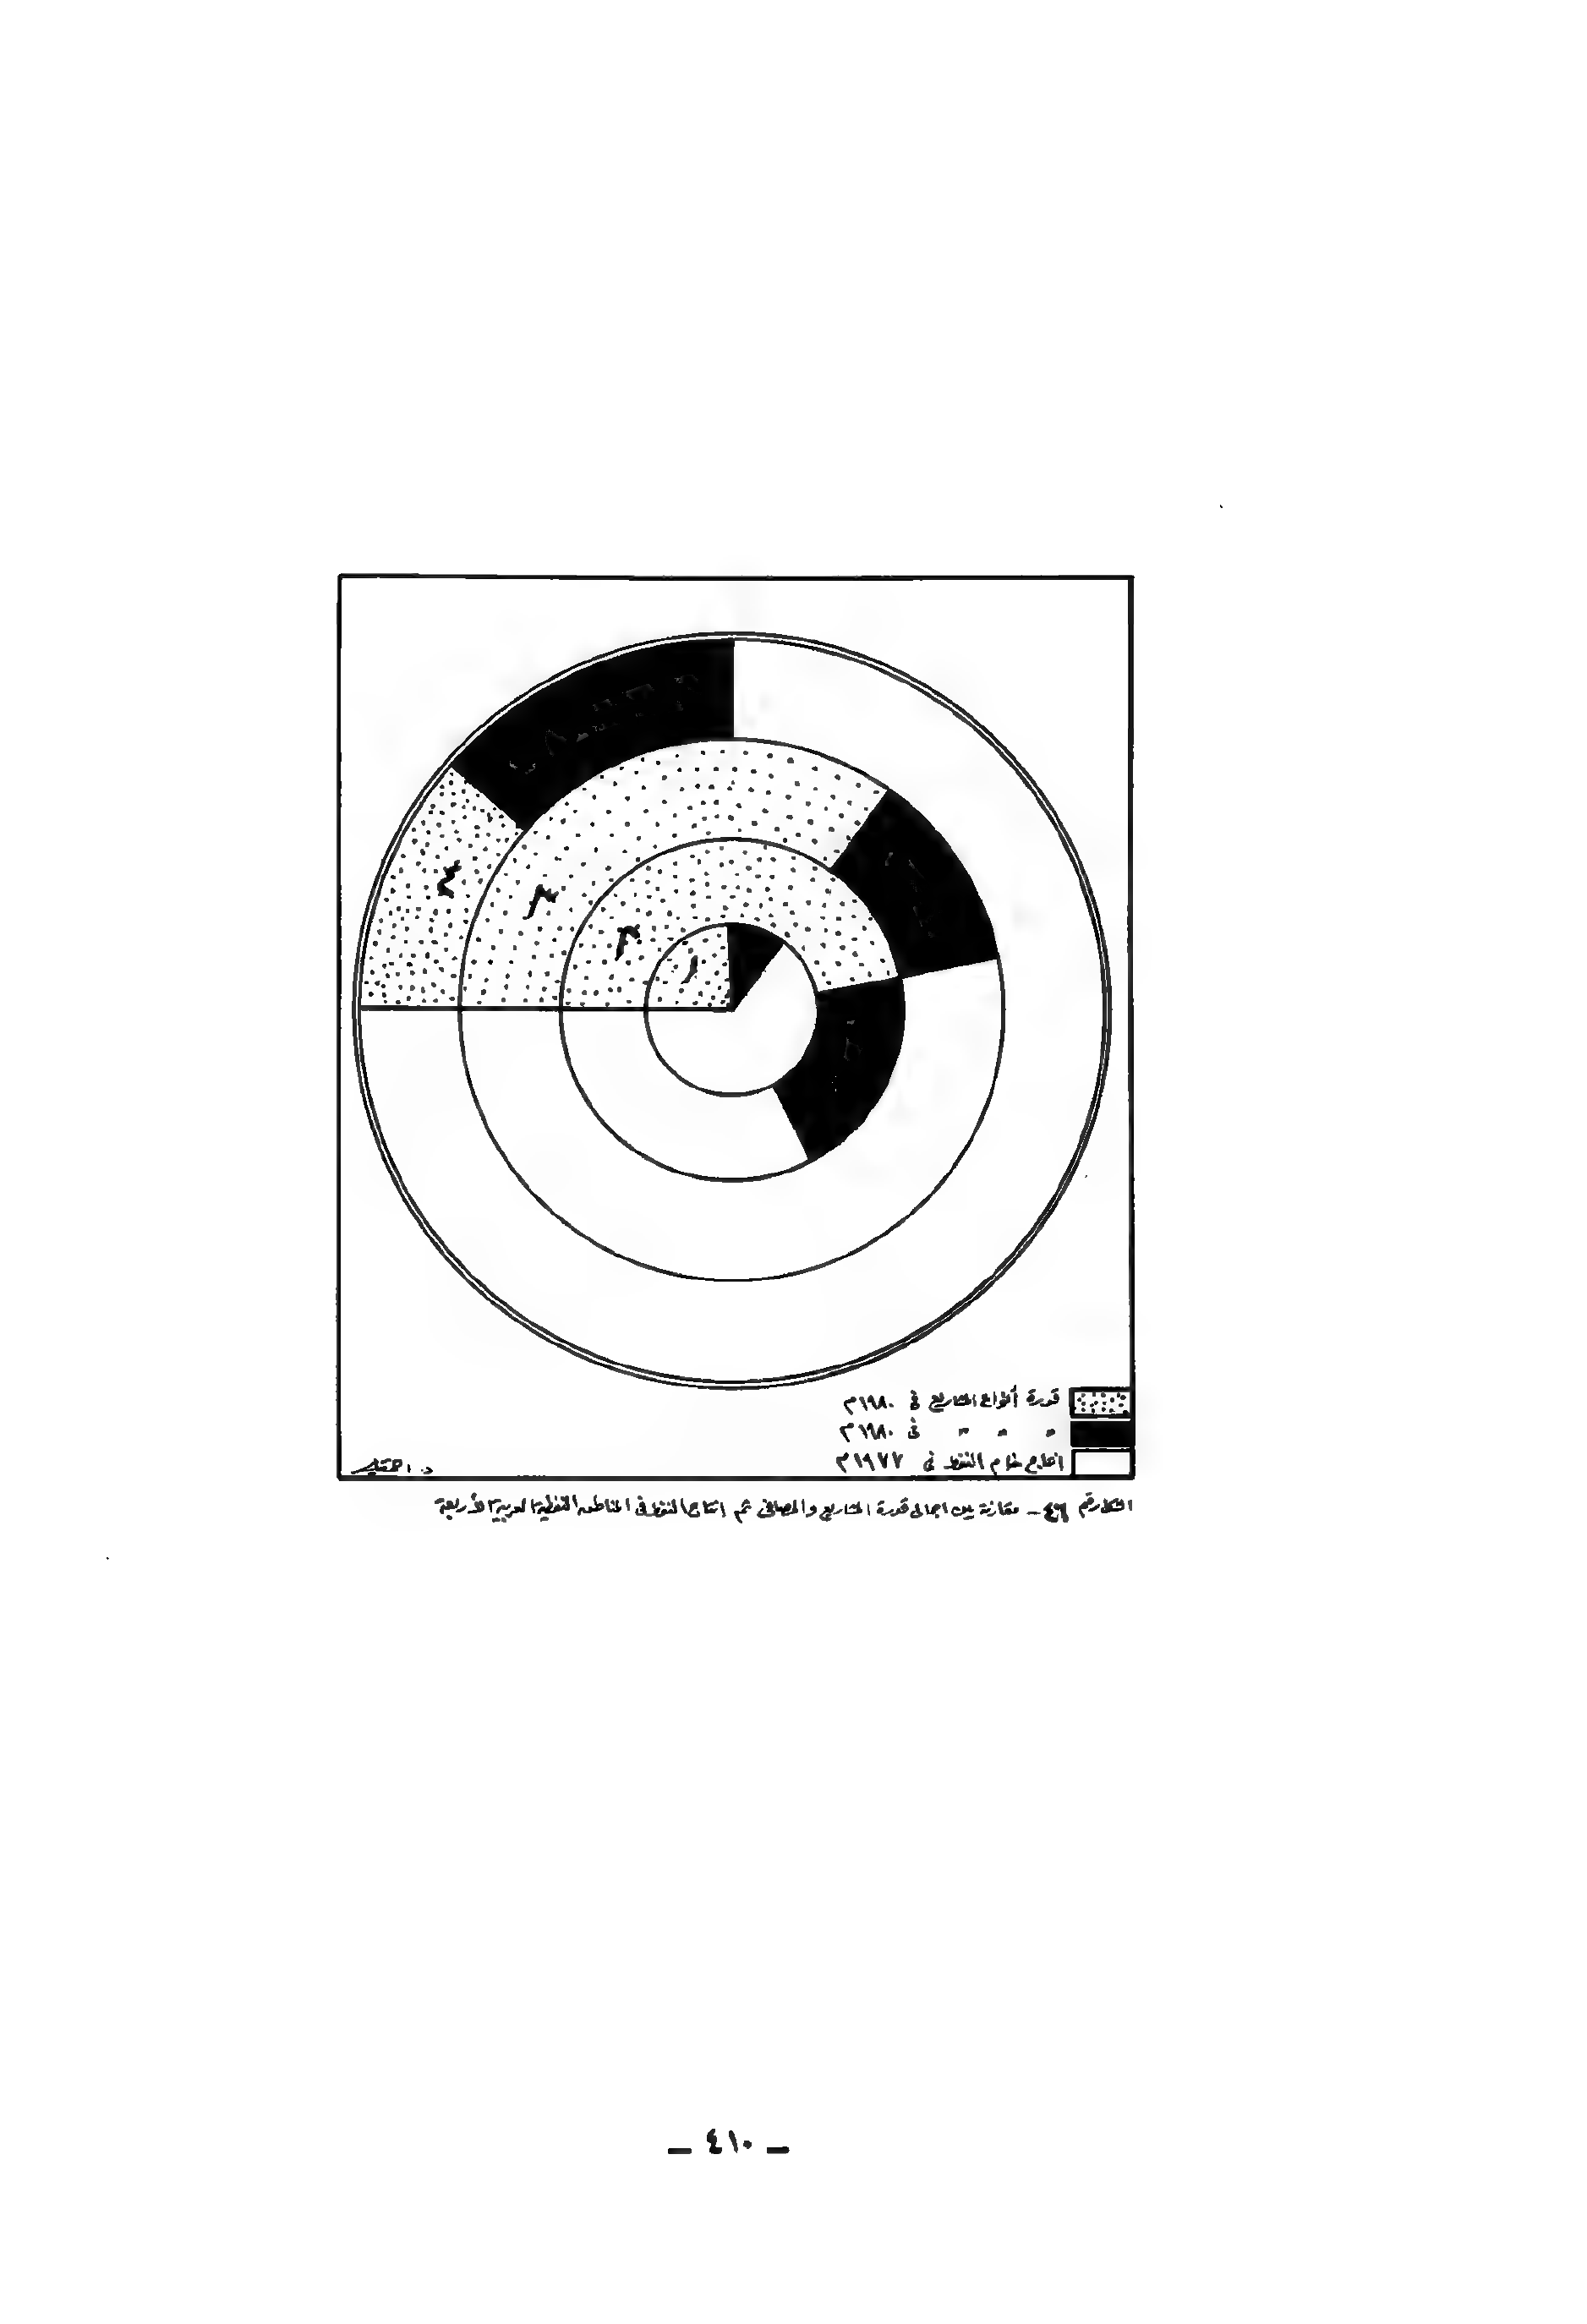 ٤
٣
٢
١
قدرة أنواع المشاريع فى ١٩٨٠م
" " " فى ١٩٨٠م
انتاج خام النفط فى ١٩٧٧م
الشكل رقم ٤٦ - مقارنة بين اجمالى قدرة المشاريع والمصافى ثم انتاج النفط فى المناطق النفطية العربية الأربعة
- ٤١٠ -